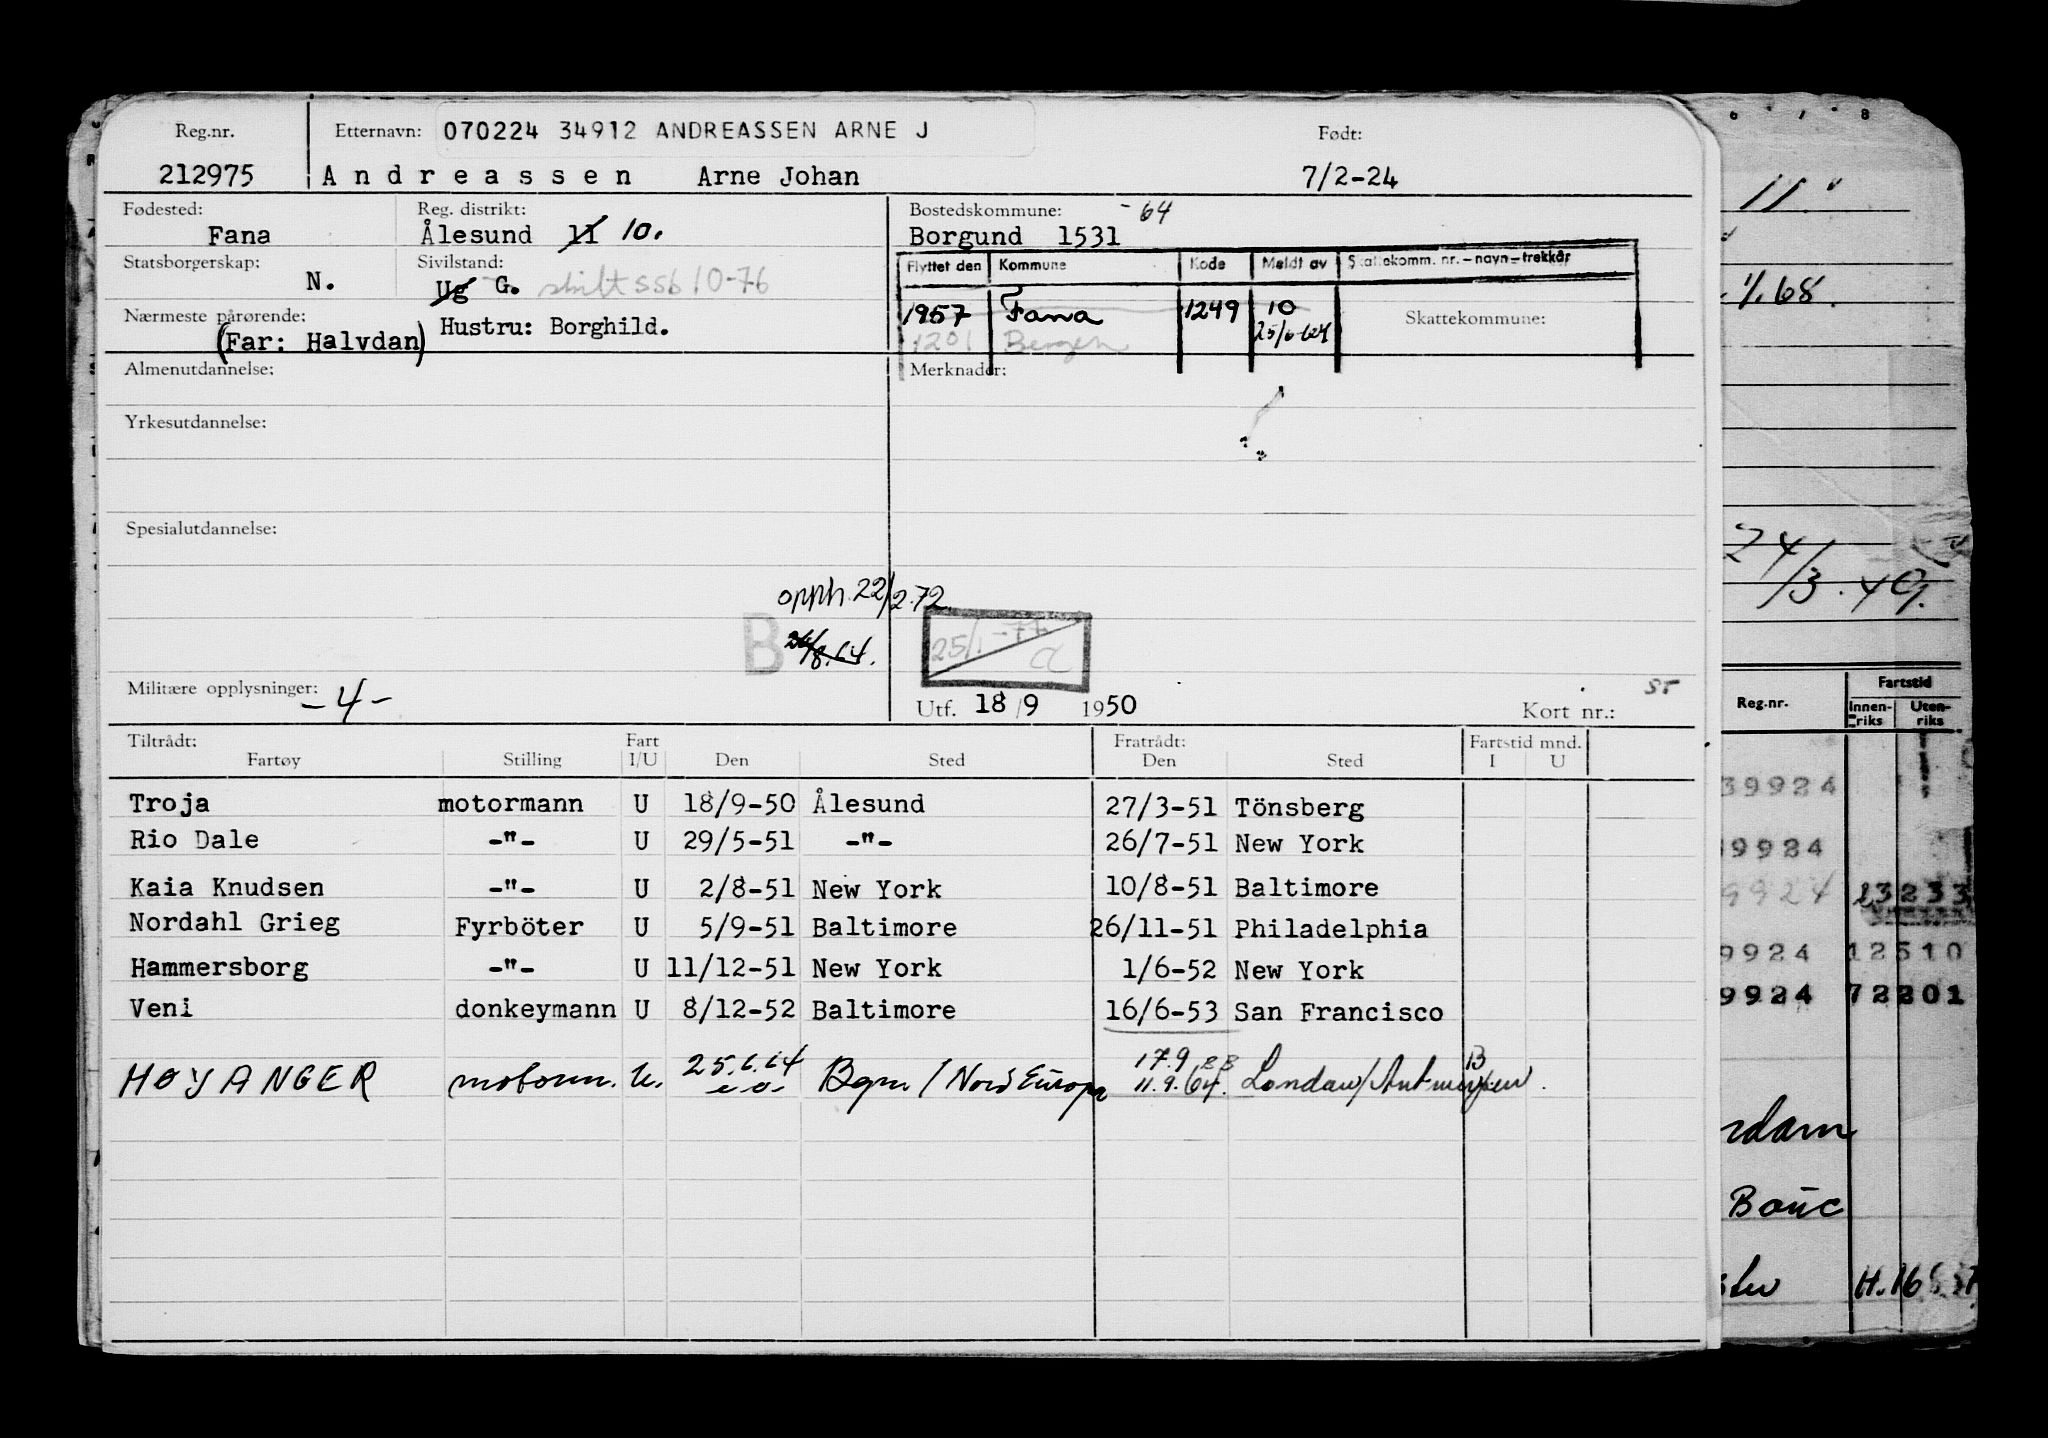 Reg.nr. Etternavn: 070224 34912 ANDREASSEN ARNE J Født:
212975 Andreassen Arne Johan 7/2-24
Fødested: Reg. distrikt: Bostedskommune: -64
Fana Ålesund 11 10. Borgund 1531
Statsborgerskap: Sivilstand: Flyttet den Kommune Kode Meldt av Skattekomm. nr. - navn - trekkår
N. Ug G. skift ssb 10-76
Nærmeste pårørende: Hustru: Borghild. 1957 Fana 1249 10 Skattekommune:
(Far: Halvdan) 1201 Bergen 25/6-64
Almenutdannelse: Merknader:
Yrkesutdannelse:
Spesialutdannelse:
opph. 22/2.72
B 24/8.64. 25/1-77 a
Militære opplysninger: -4- Utf. 18/9 1950 Kort nr.: ST
Tiltrådt: Fart Fratrådt: Fartstid mnd.
Fartøy Stilling I/U Den Sted Den Sted I U
Troja motormann U 18/9-50 Ålesund 27/3-51 Tönsberg
Rio Dale -"- U 29/5-51 -"- 26/7-51 New York
Kaia Knudsen -"- U 2/8-51 New York 10/8-51 Baltimore
Nordahl Grieg Fyrböter U 5/9-51 Baltimore 26/11-51 Philadelphia
Hammersborg -"- U 11/12-51 New York 1/6-52 New York
Veni donkeymann U 8/12-52 Baltimore 16/6-53 San Francisco
HØYANGER motorm. U. 25.6.64 Bgn / Nord Europa 17.9 11.9.64. London/Antwerpen.
6 7 8
11.
1/1.68.
24/3.49.
Reg.nr. Fartstid
Innen-riks Uten-riks
39924
9924
9924 23233
9924 12510
9924 72201
rdam
Bouc